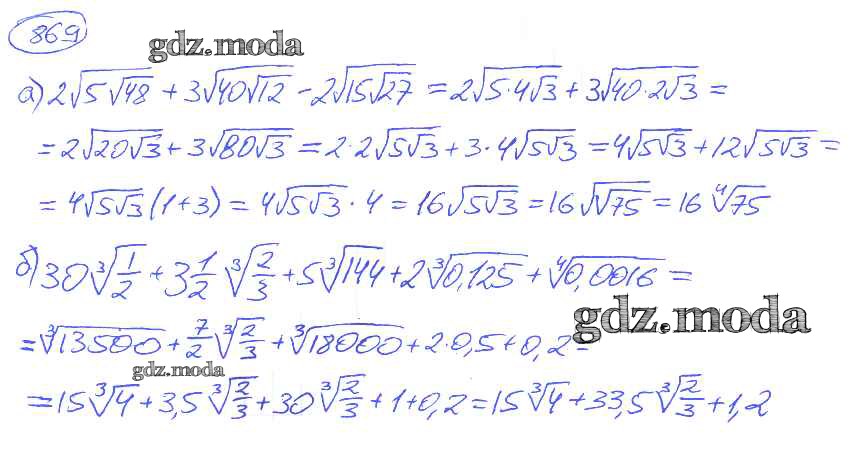 869
gdz.moda
а) 2√(5√48) + 3√(40√12) - 2√(15√27) = 2√(5·4√3) + 3√(40·2√3) =
= 2√(20√3) + 3√(80√3) = 2·2√(5√3) + 3·4√(5√3) = 4√(5√3) + 12√(5√3) =
= 4√(5√3) (1+3) = 4√(5√3) · 4 = 16√(5√3) = 16√(√75) = 16 ⁴√75
б) 30 ³√(1/2) + 3 1/2 ³√(2/3) + 5 ³√144 + 2 ³√0,125 + ⁴√0,0016 =
gdz.moda
= ³√13500 + 7/2 ³√(2/3) + ³√18000 + 2·0,5 + 0,2 =
gdz.moda
= 15 ³√4 + 3,5 ³√(2/3) + 30 ³√(2/3) + 1 + 0,2 = 15 ³√4 + 33,5 ³√(2/3) + 1,2